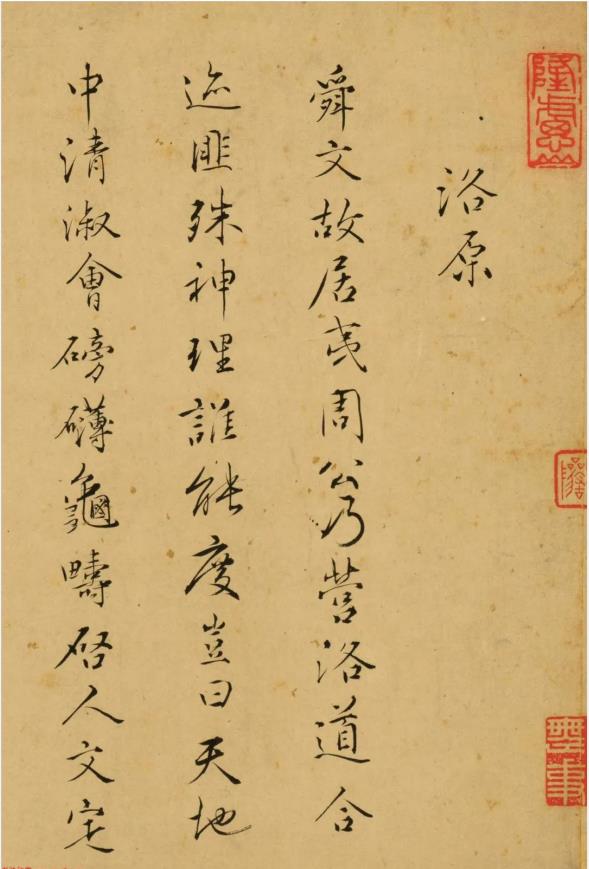 洛原
舜文故居夷周公乃營洛道合
迹匪殊神理誰能度豈曰天地
中清淑會磅礴龜疇启人文宅